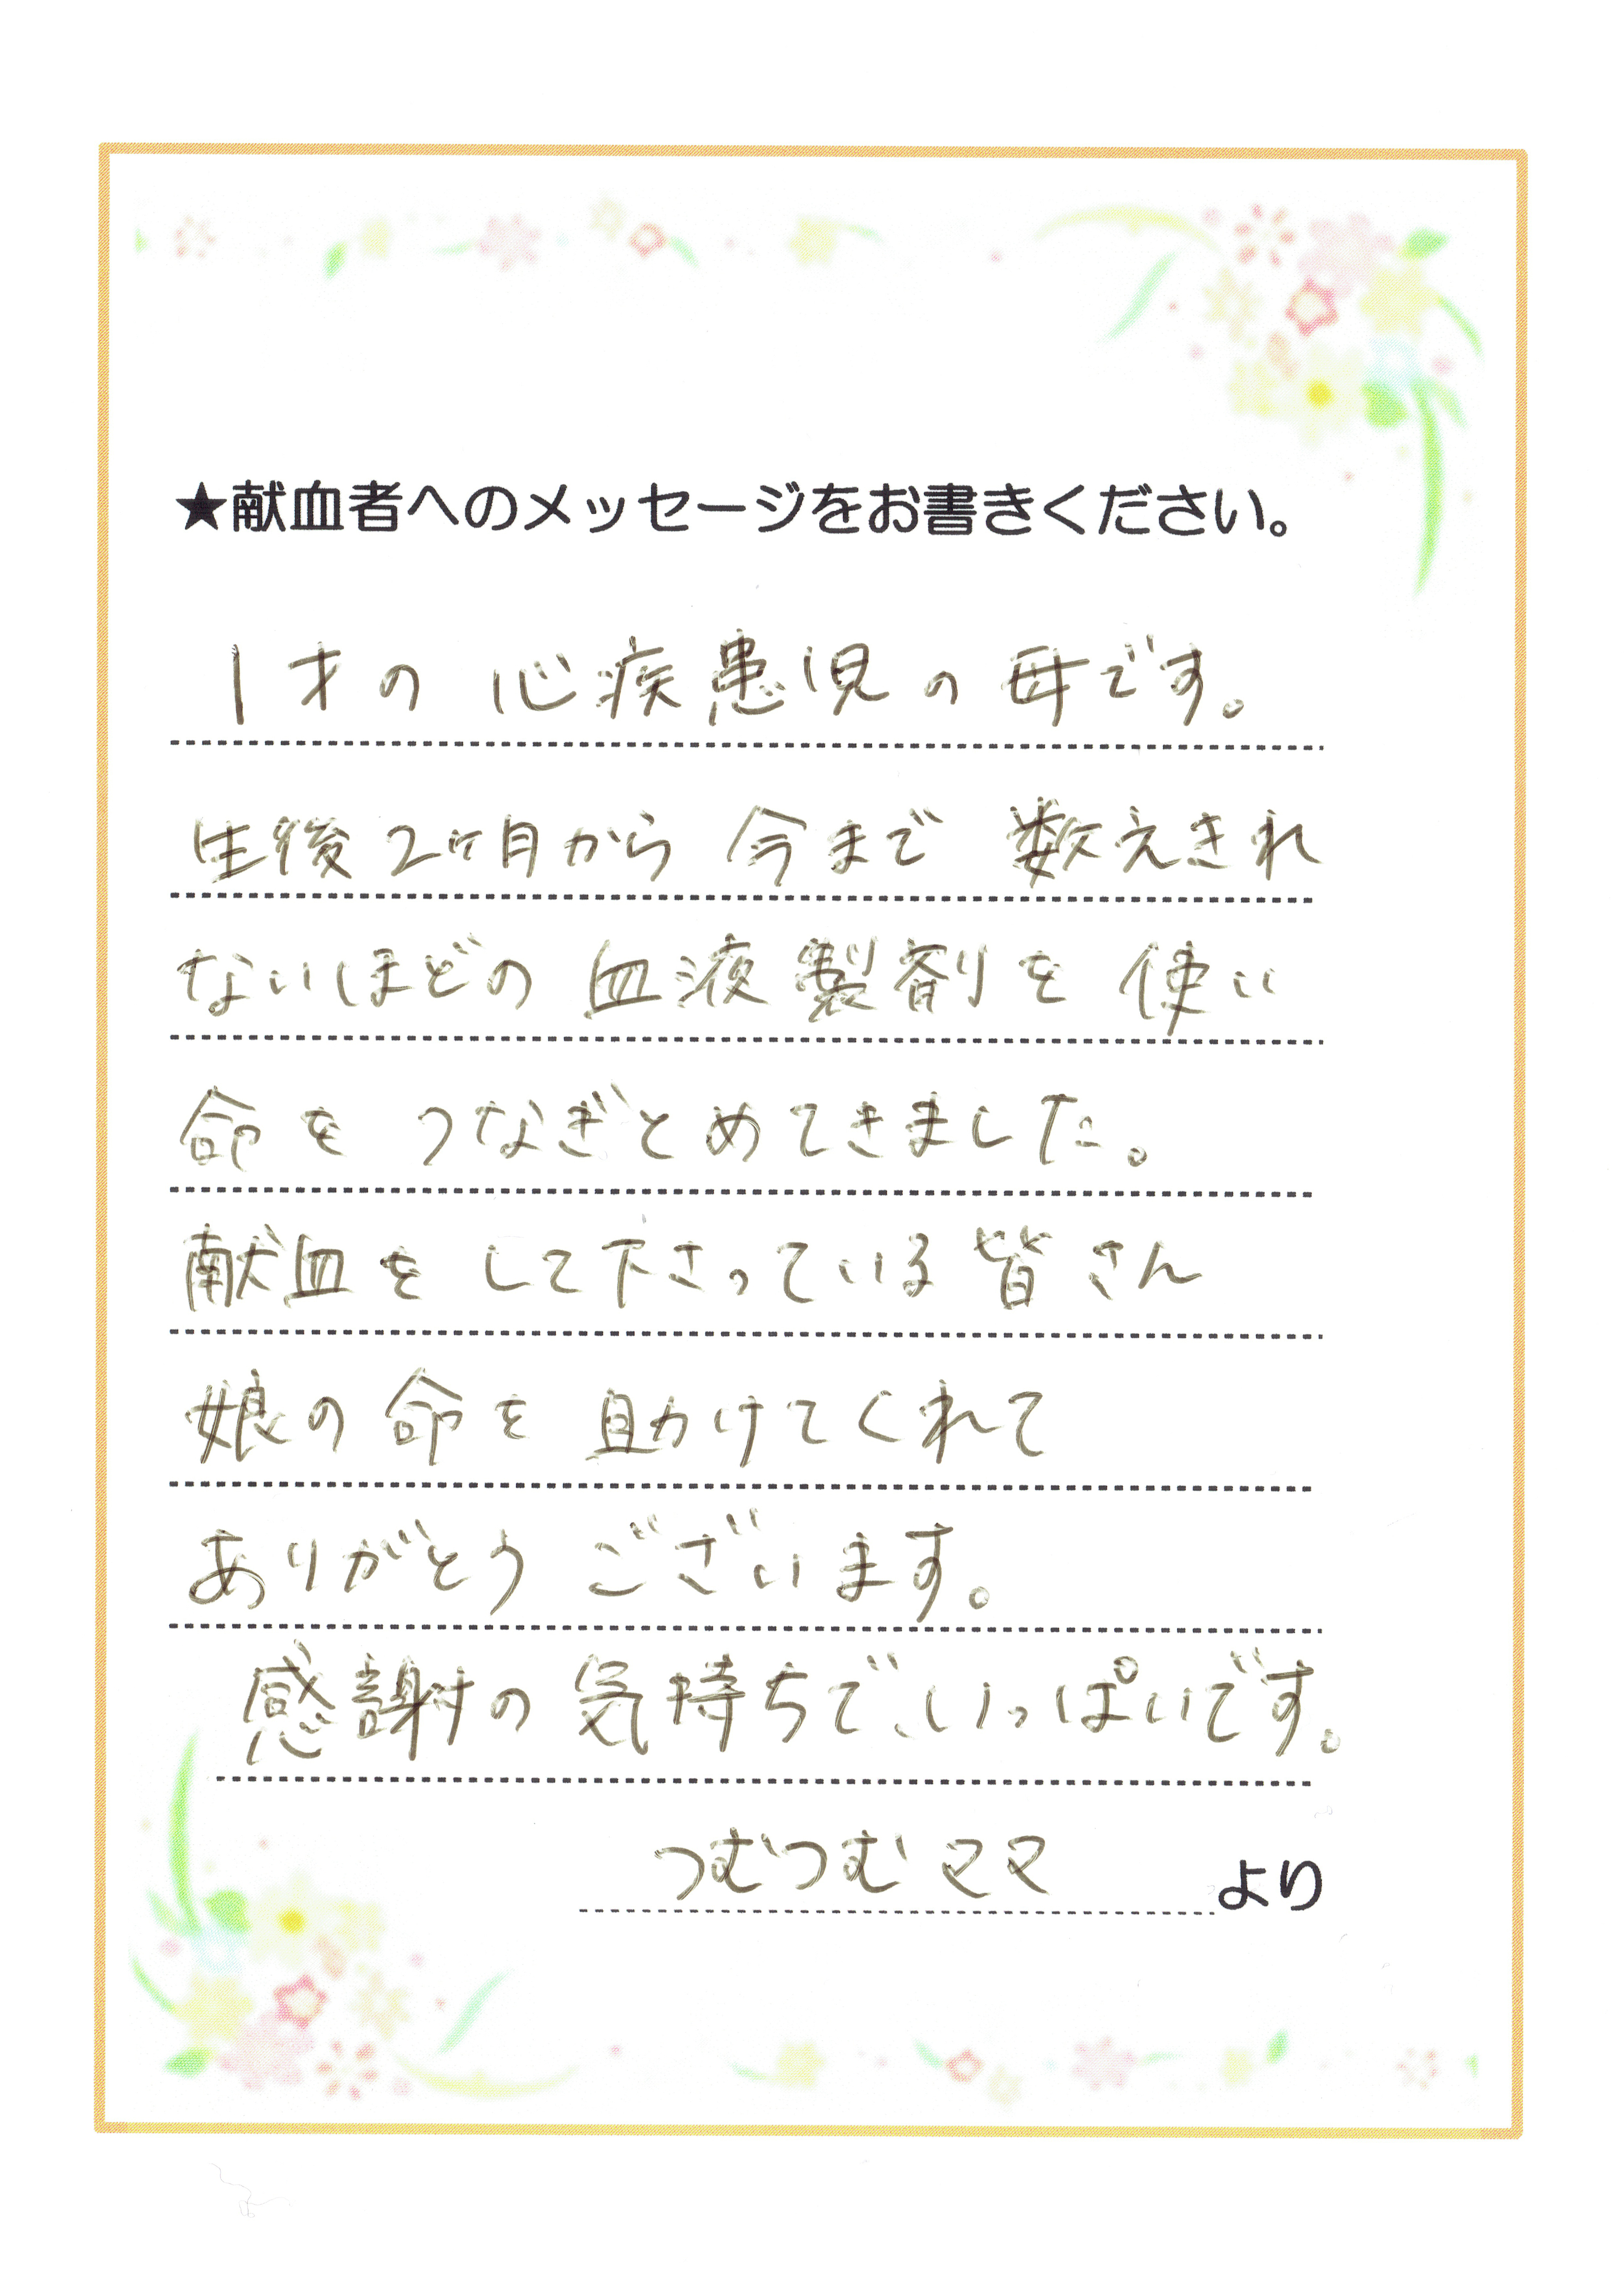 ★献血者へのメッセージをお書きください。
1才の心疾患児の母です。
生後2ヶ月から今まで数えきれ
ないほどの血液製剤を使い
命をつなぎとめてきました。
献血をして下さっている皆さん
娘の命を助けてくれて
ありがとうございます。
感謝の気持ちで、いっぱいです。
つむつむママより